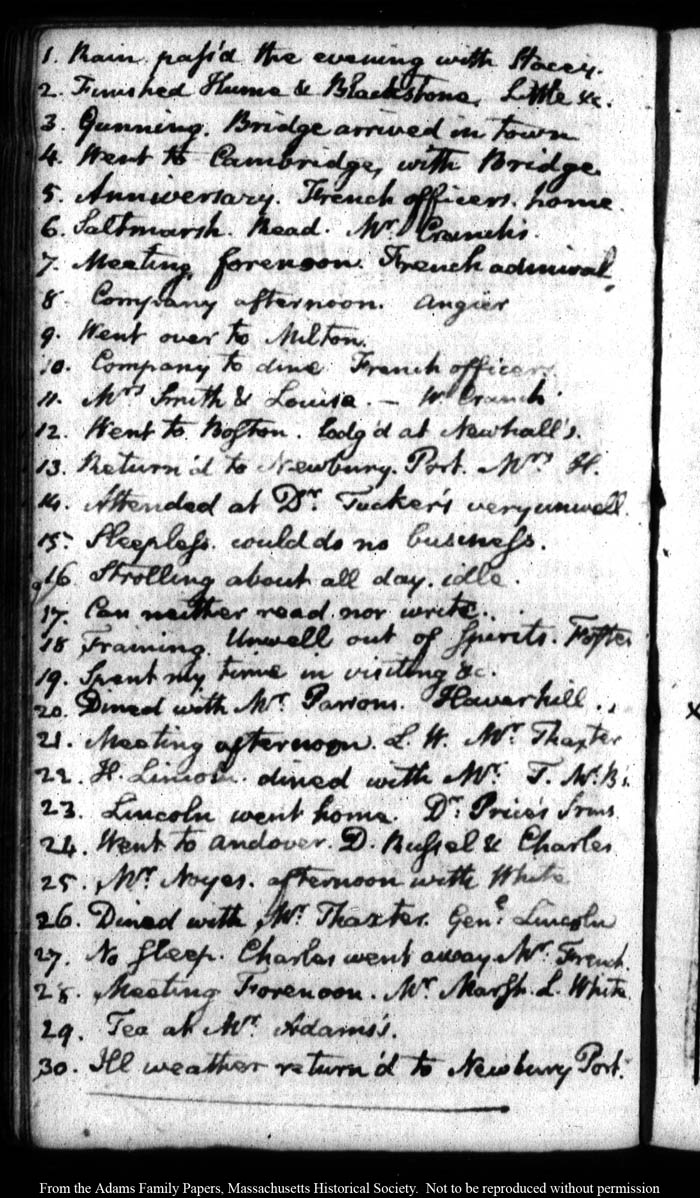 1. Rain. pass'd the evening with Stacey.
2. Finished Hume & Blackstone. Little &c.
3. Gunning. Bridge arrived in town
4. Went to Cambridge, with Bridge.
5. Anniversary. French officers. home.
6. Saltmarsh. Read. Mr. Cranch's.
7. Meeting forenoon. French admiral.
8. Company afternoon. Angier
9. Went over to Milton.
10. Company to dine French officers
11. Mrs. Smith & Louisa. — W. Cranch
12. Went to Boston. lodg'd at Newhall's.
13. Return'd to Newbury-Port. Mrs. H.
14. Attended at Dr. Tucker's very unwell.
15. Sleepless. could do no business.
16. Strolling about all day. idle.
17. Can neither read nor write.
18 Training. Unwell out of Spirits. Foster
19. Spent my time in visiting &c.
20. Dined with Mr. Parsons. Haverhill.
21. Meeting afternoon. L. W. Mr. Thaxter
22. H. Lincoln. dined with Mr. T. Mr. B's.
23. Lincoln went home. Dr. Price's Srms.
24. Went to Andover. D. Russel & Charles
25. Mr. Noyes. afternoon with White
26. Dined with Mr. Thaxter. Genl. Lincoln
27. No sleep. Charles went away. Mr. French.
28. Meeting Forenoon. Mr. Marsh. L. White
29. Tea at Mr. Adams's.
30. Ill weather return'd to Newbury Port.
From the Adams Family Papers, Massachusetts Historical Society. Not to be reproduced without permission